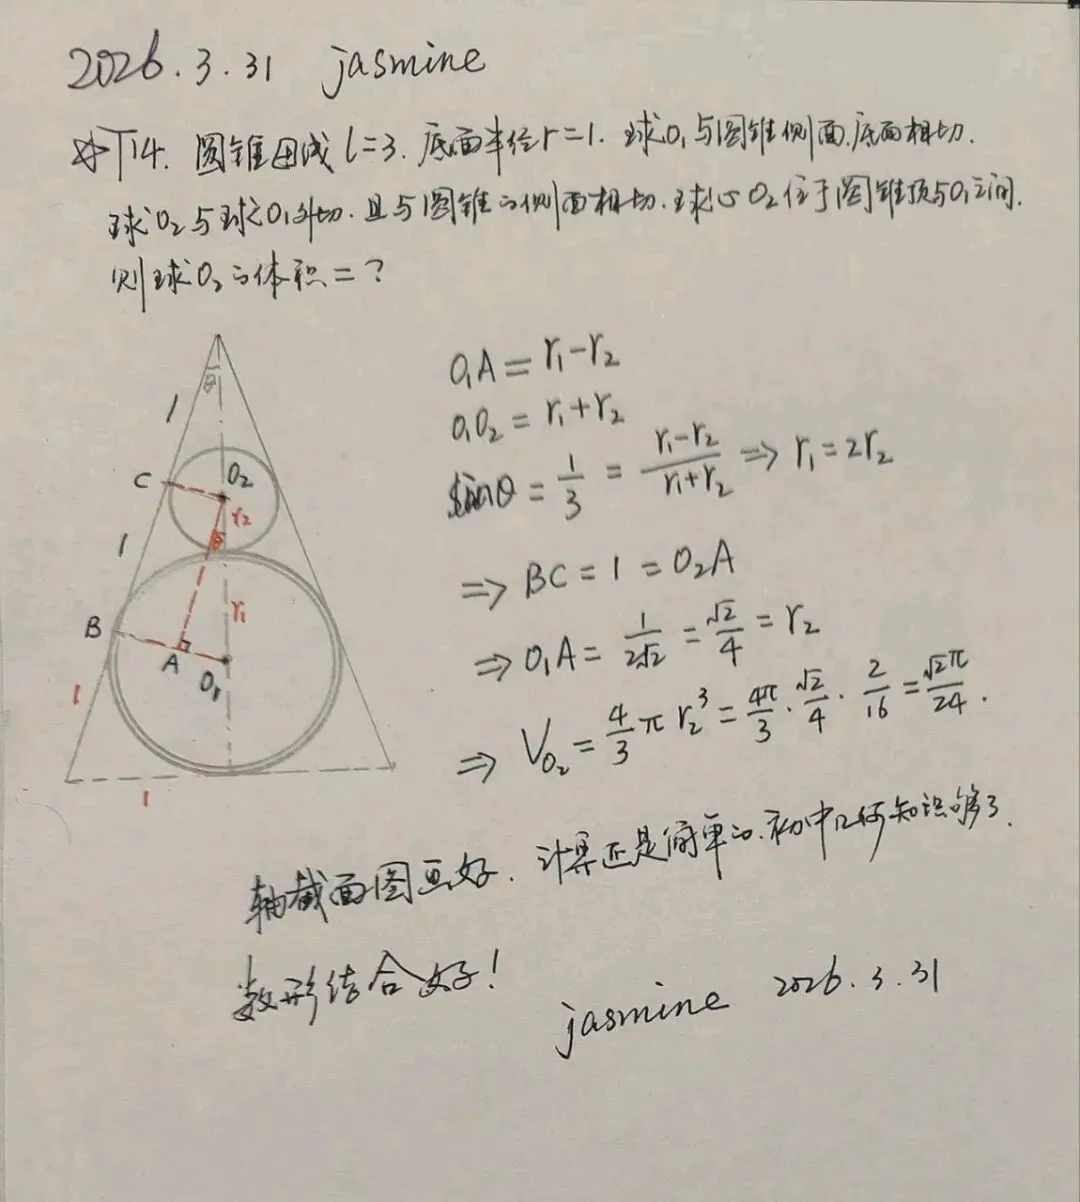 2026.3.31 jasmine
T14. 圆锥母线 l=3. 底面半径 r=1. 球O₁与圆锥侧面.底面相切.
球O₂与球O₁外切. 且与圆锥的侧面相切. 球心O₂位于圆锥顶与O₁之间.
则球O₂的体积=?
θ
1
C
O₂
r₂
θ
1
r₁
B
A
O₁
1
1
O₁A = r₁-r₂
O₁O₂ = r₁+r₂
sinθ = 1/3 = (r₁-r₂)/(r₁+r₂) ⇒ r₁=2r₂
⇒ BC = 1 = O₂A
⇒ O₁A = 1/(2√2) = √2/4 = r₂
⇒ V_{O₂} = 4/3 π r₂³ = 4π/3 · √2/4 · 2/16 = √2π/24 .
轴截面图画好. 计算还是简单的. 初中几何知识够了.
数形结合好!
jasmine 2026.3.31